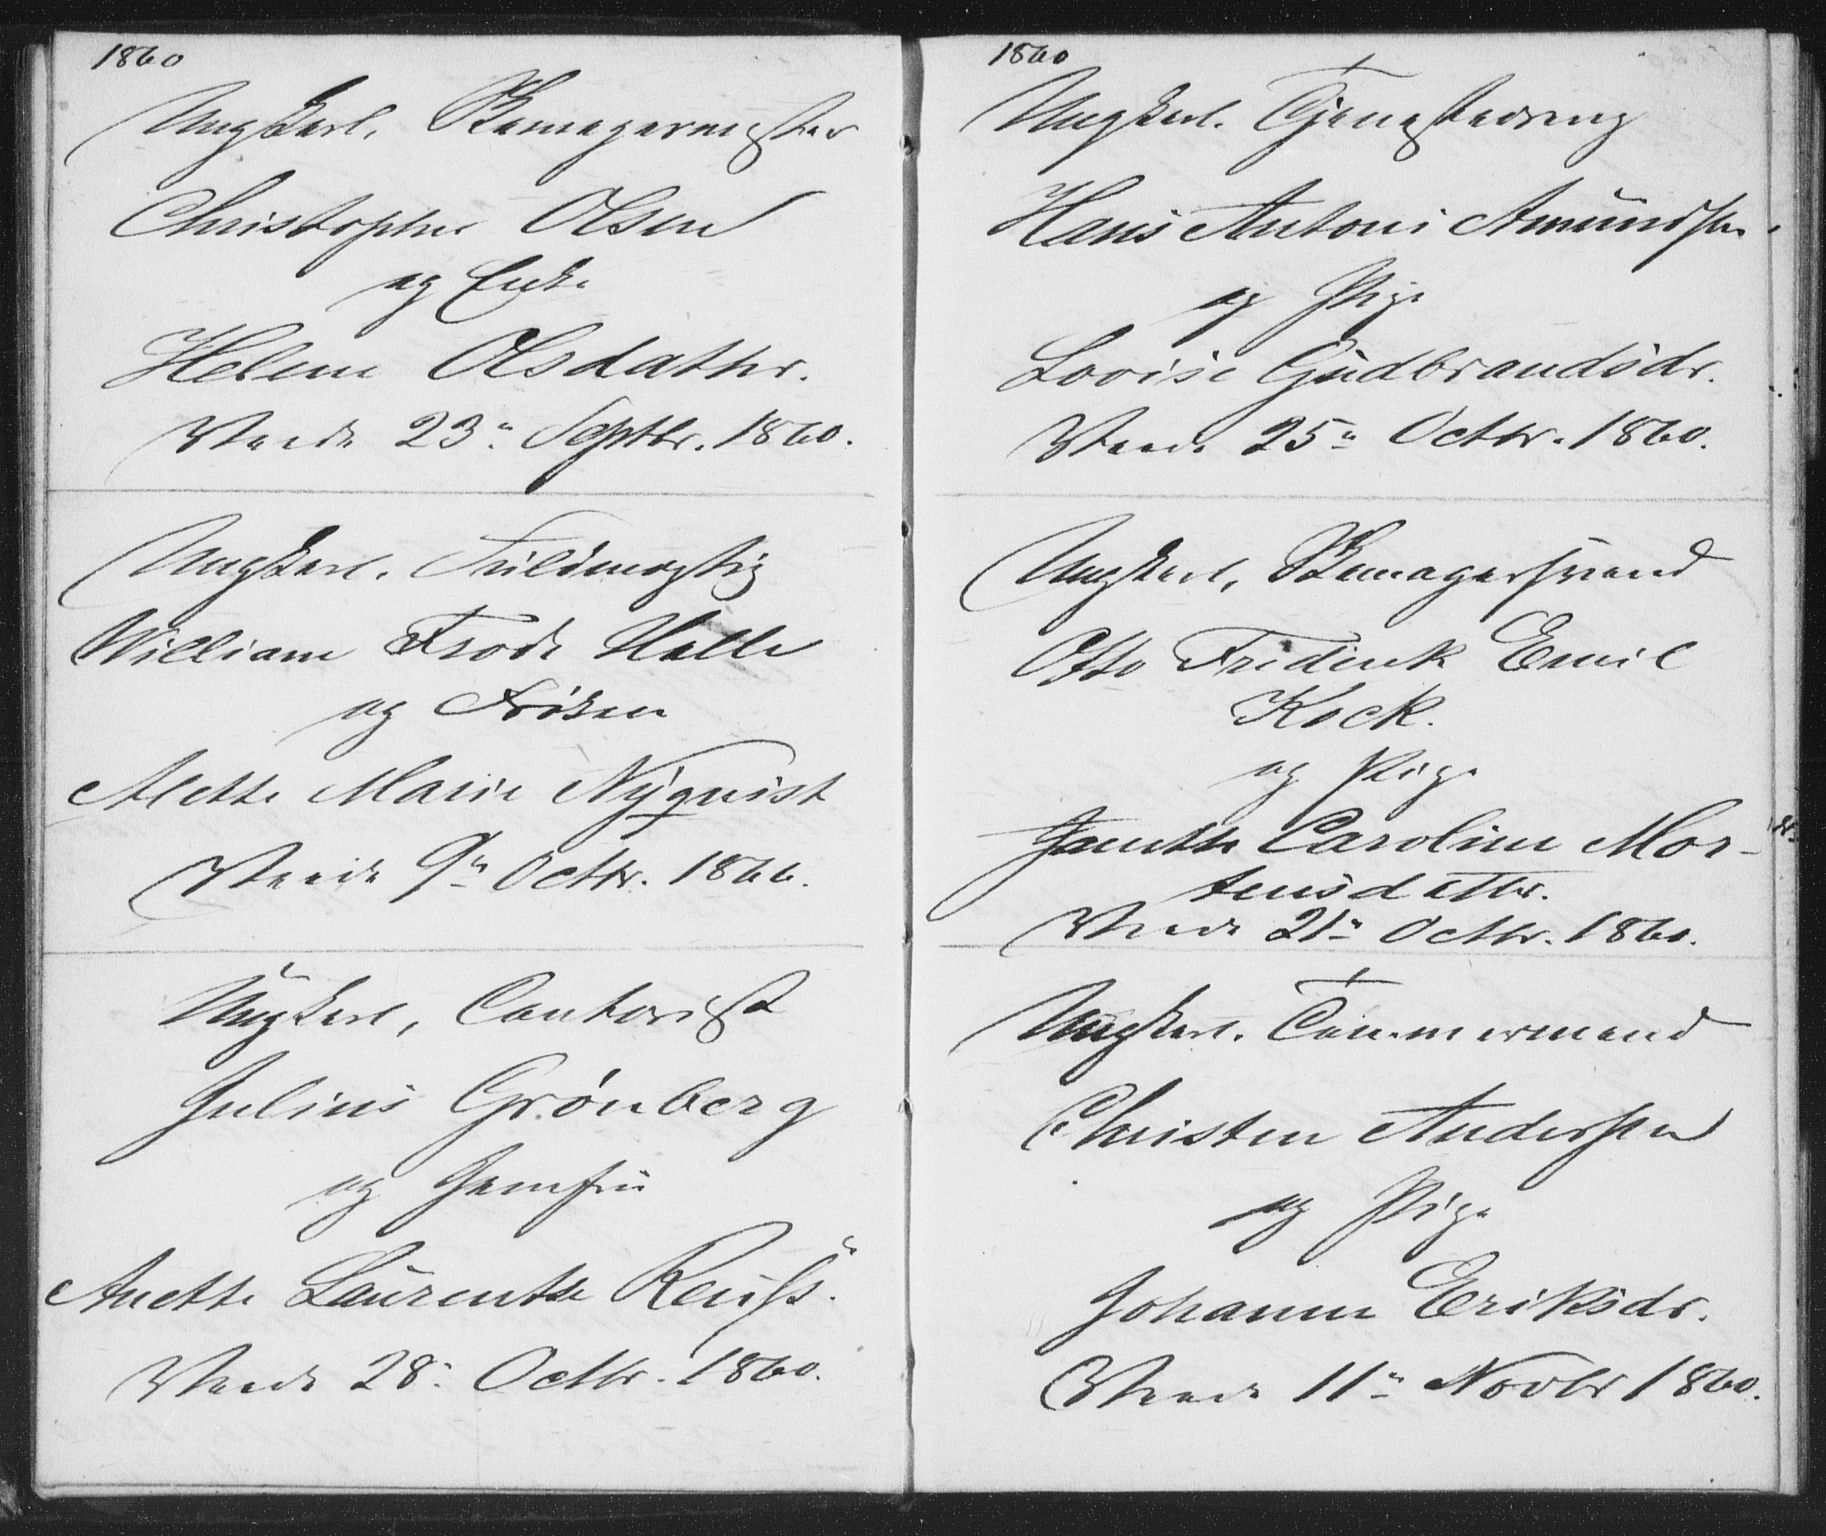 1860
Ungkarl. Bamagermester
Christopher Olsen
og Enke
Helene Olsdatter.
Viede 23de Septbr. 1860.
Ungkarl. Fuldmægtig
William Frode Helle
og Frøken
Alette Marie Nyquist
Viede 9de Octbr. 1860.
Ungkarl, Contorist
Julius Grönberg
og Jomfru
Anette Laurentze Reuss.
Viede 28. Octbr. 1860.
1860
Ungkarl. Tjenestedreng
Hans Antoni Amundsen
og Pige
Lovise Gudbrandsdr.
Viede 25de Octbr. 1860.
Ungkarl, Bemagersvend
Otto Frederik Emil
Kock.
og Pige
Caroline Mor-
tensdatter.
Viede 21de Octbr. 1860.
Ungkarl. Tømmermand
Christen Anderssen
og Pige
Johanne Eriksdr.
Viede 11te Novbr 1860.